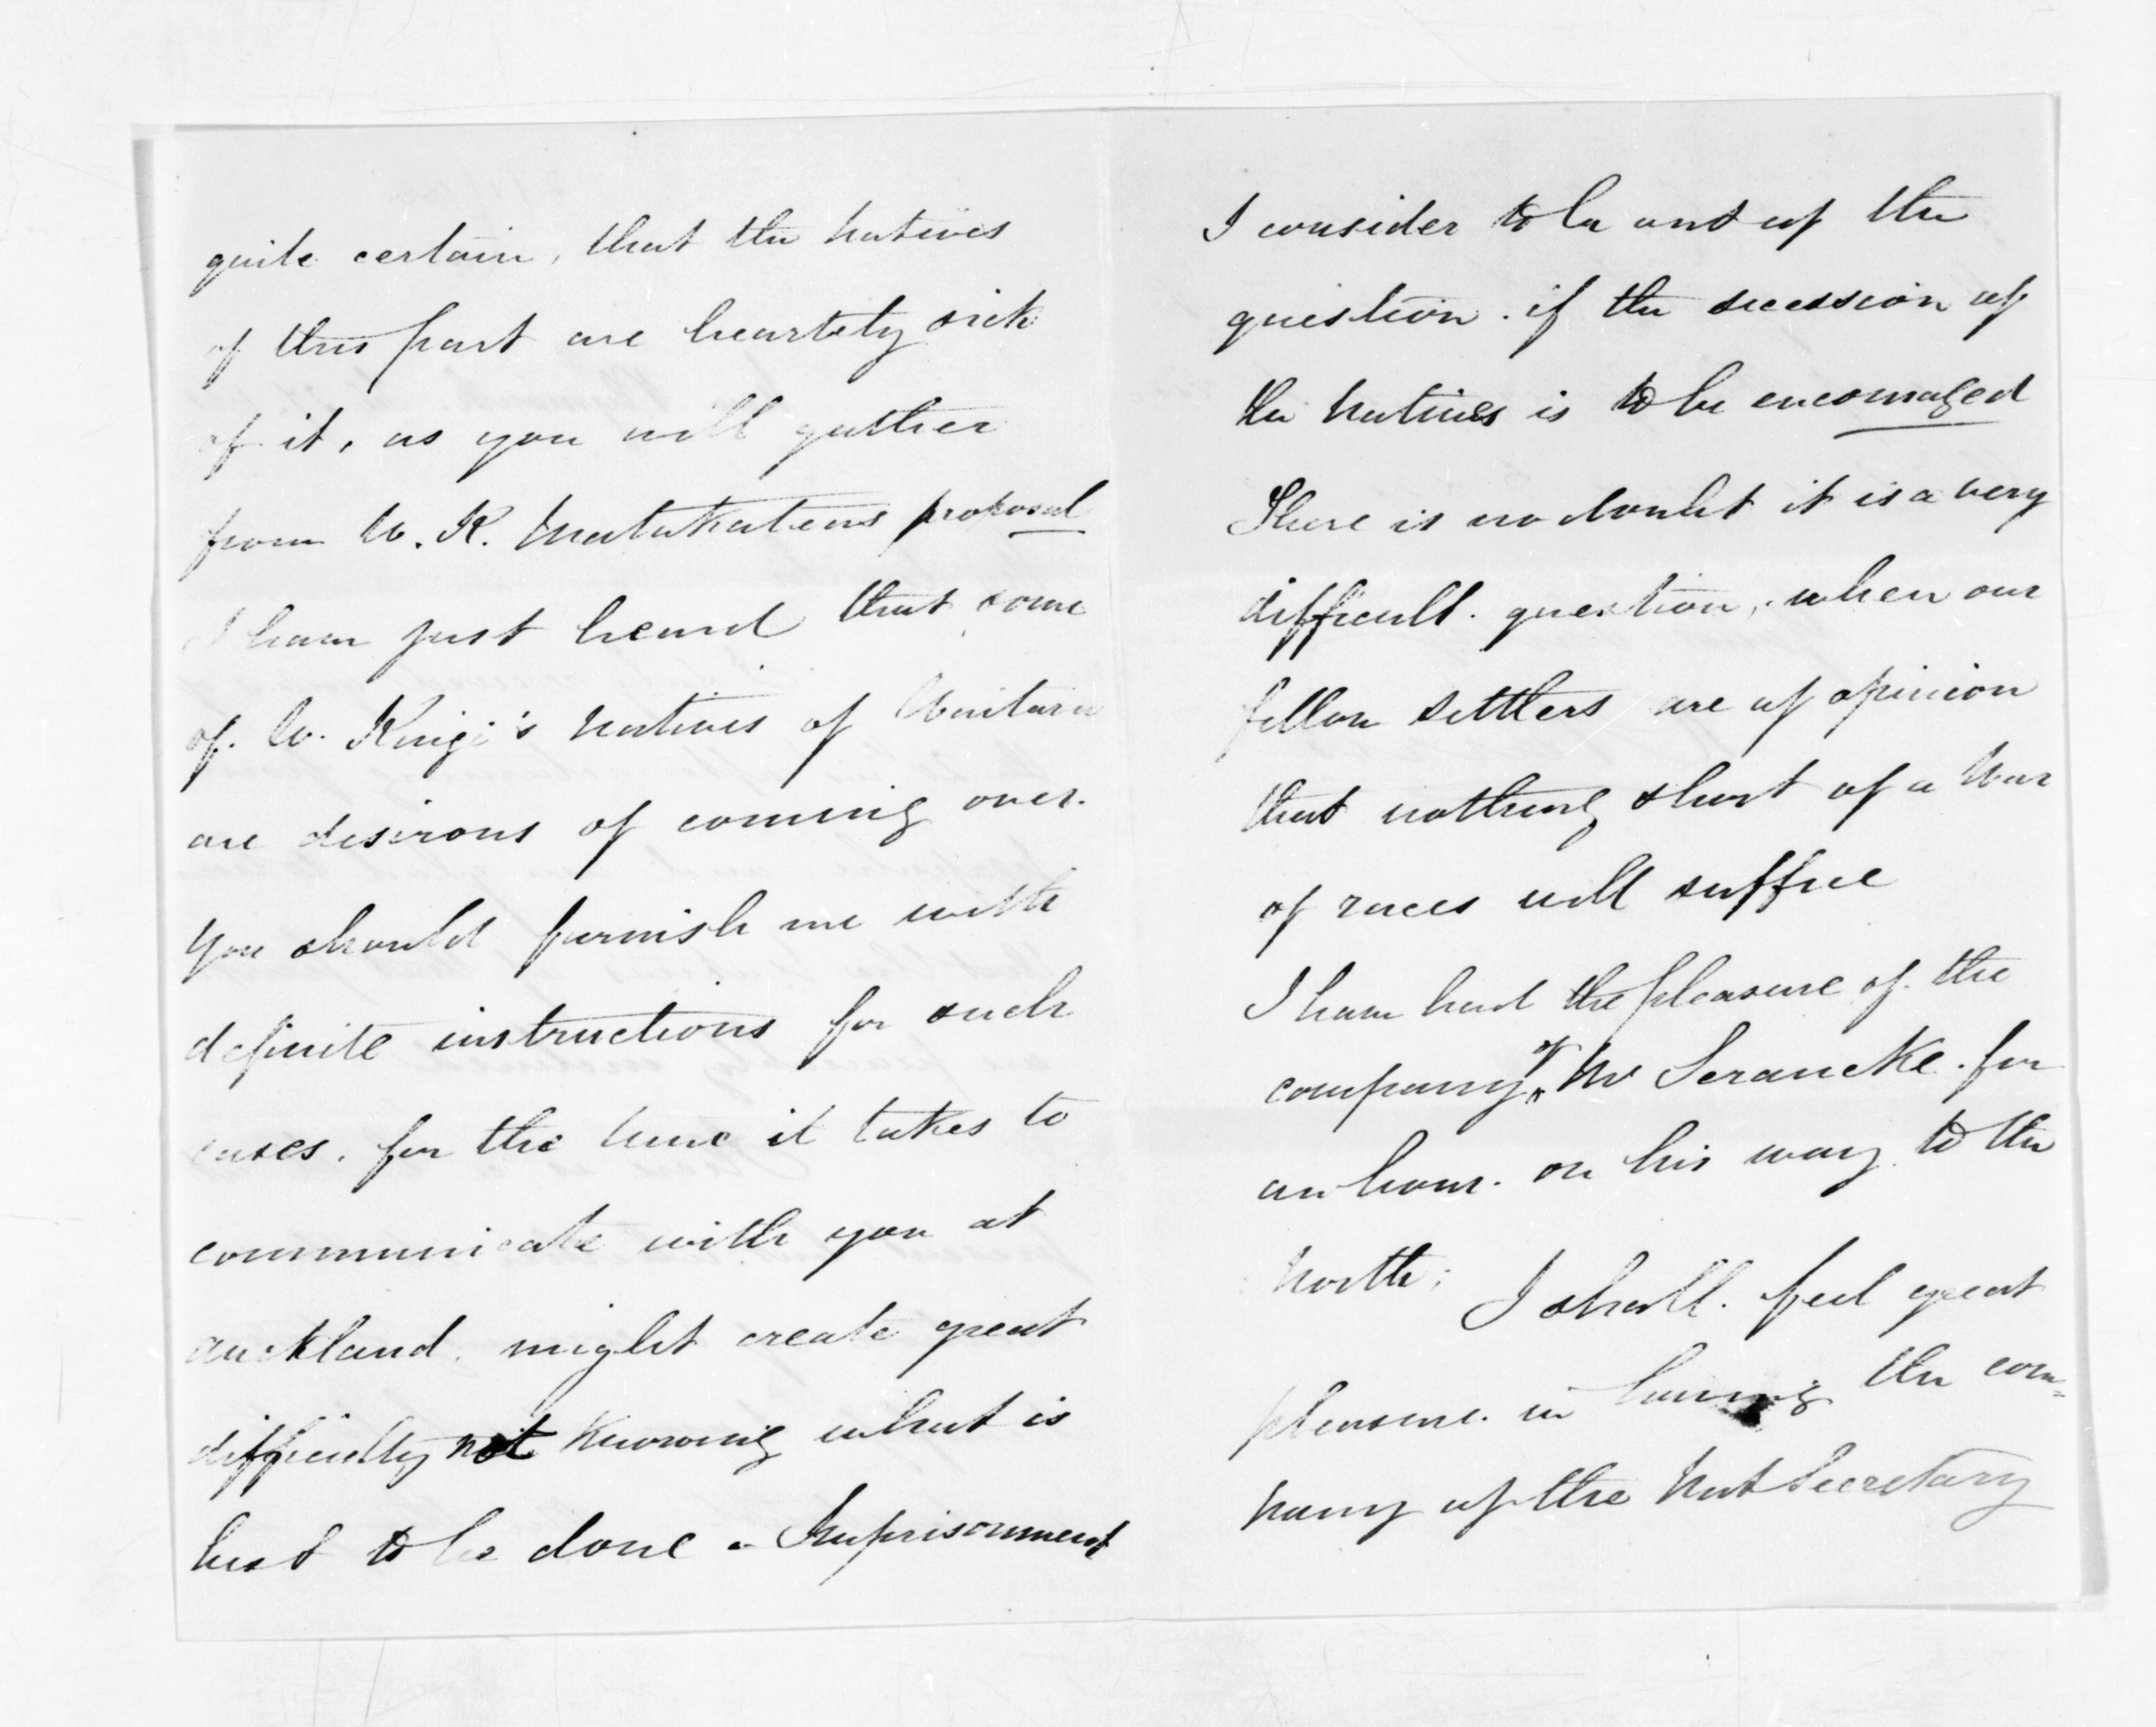 quite certain, that the Natives
of this part are heartely sick
of it, as you will gather
from W. K. Matakateas proposal
I have just heard that some
of. W. Kingi's Natives of Waitara
are desirous of coming over.
You should furnish me with
definite instructions for such
cases. for the time it takes to
communicate with you at
Auckland. might create great
difficulty not knowing what is
best to be done - Imprisonment
I consider to be out of the
question. if the secession of
the Natives is to be encouraged
There is no doubt it is a very
difficult. question, when our
fellow settlers are of opinion
that nothing short of a War
of races will suffice
I have had the pleasure of. the
company of Mr Serancke. for
an hour. on his way to the
North; I shall. feel great
pleasure. in having the com=
pany of the Nat Secretary